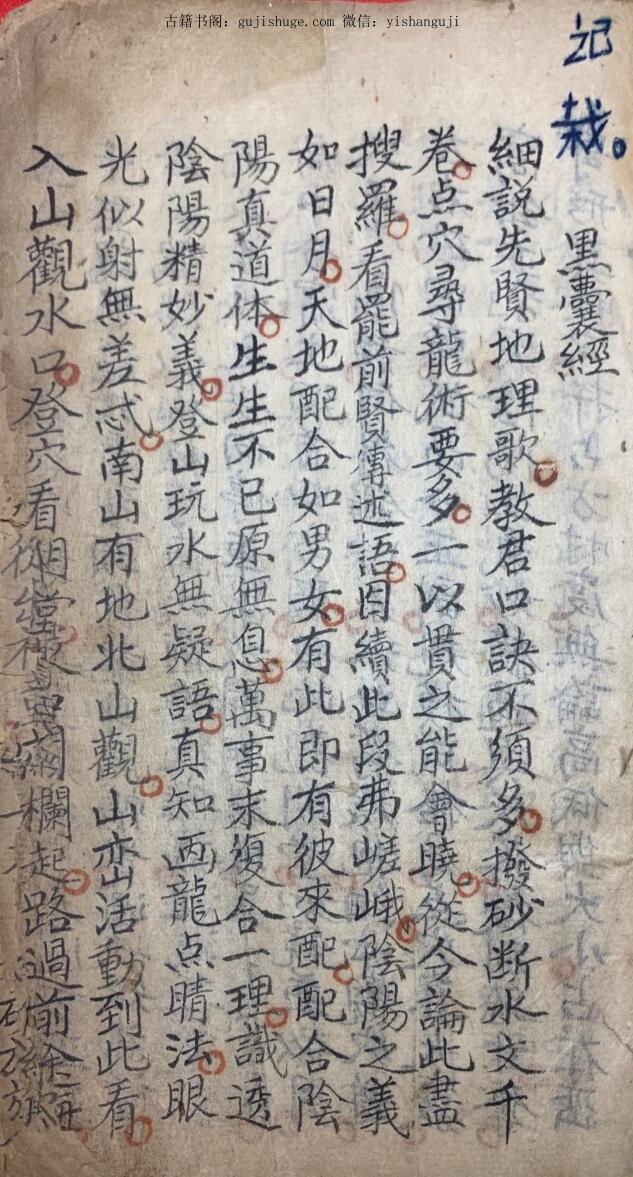 古籍书阁：gujishuge.com 微信：yishanguji
記
栽。
黑囊經
細説先賢地理歌教君口訣不須多撥砂断水文千
卷点穴尋龍術要多一以貫之能會曉從今論此盡
搜羅看罷前賢傳述語因續此段弗嵯峨陰陽之義
如日月天地配合如男女有此即有彼來配配合陰
陽真道体生生不已原無息萬事末復合一理識透
陰陽精妙義登山玩水無疑語真知画龍点睛法眼
光似射無差忒南山有地北山觀山峦活動到此看
入山觀水口登穴看明堂欄起路過前